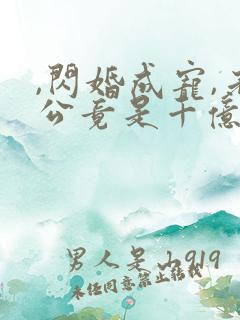 ,閃婚成寵,老
公竟是十億
男人是山919
未任同意禁止转载